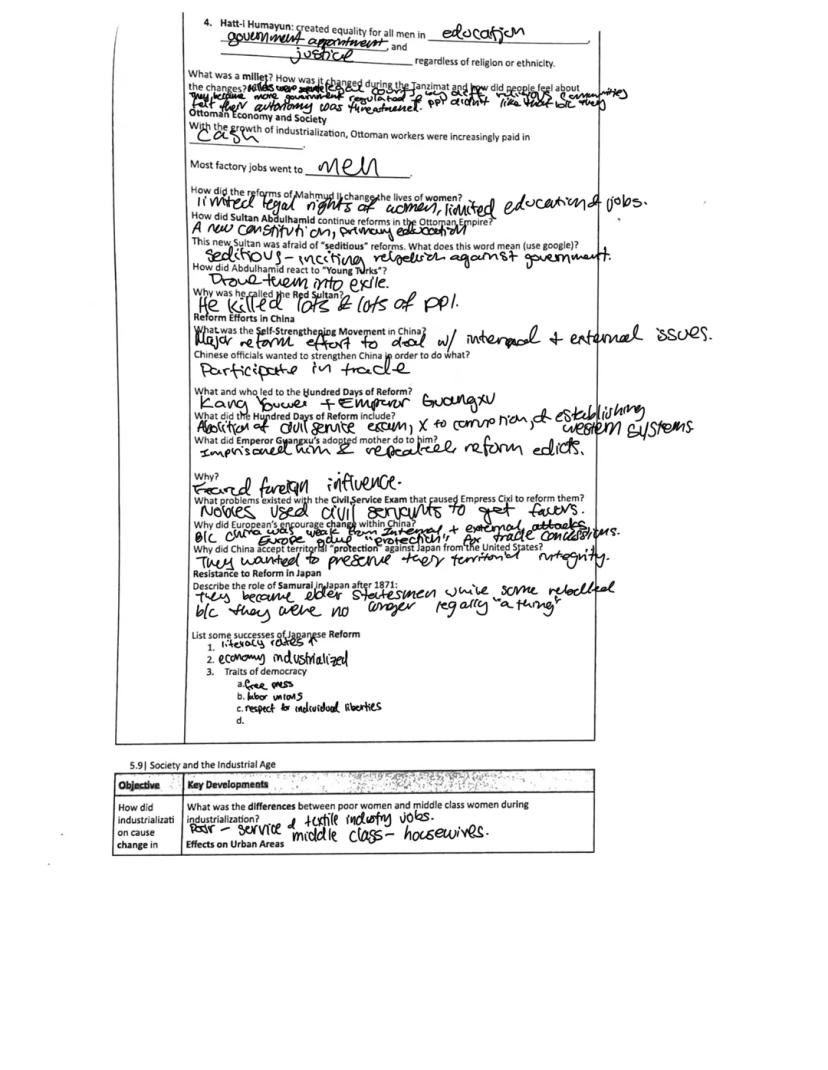 4. Hatt-i Humayun: created equality for all men in education
government appointment, and
justice regardless of religion or ethnicity.
What was a millet? How was it changed during the Tanzimat and how did people feel about
the changes? Millets were separate legal courts by diff religious communities
They became more government regulated & ppl didn't like that b/c they
felt their autonomy was threatened.
Ottoman Economy and Society
With the growth of industrialization, Ottoman workers were increasingly paid in
Cash.
Most factory jobs went to men.
How did the reforms of Mahmud II change the lives of women?
limited legal rights of women, limited education & jobs.
How did Sultan Abdulhamid continue reforms in the Ottoman Empire?
A new constitution, primary education
This new Sultan was afraid of "seditious" reforms. What does this word mean (use google)?
Seditious - inciting rebellion against government.
How did Abdulhamid react to "Young Turks"?
Drove them into exile.
Why was he called the Red Sultan?
He killed lots & lots of ppl.
Reform Efforts in China
What was the Self-Strengthening Movement in China?
Major reform effort to deal w/ internal + external issues.
Chinese officials wanted to strengthen China in order to do what?
Participate in trade
What and who led to the Hundred Days of Reform?
Kang Youwei + Emperor Guangxu
What did the Hundred Days of Reform include?
Abolition of civil service exam, X to corruption, & establishing
western systems
What did Emperor Guangxu's adopted mother do to him?
Imprisoned him & repealed reform edicts.
Why?
Feared foreign influence.
What problems existed with the Civil Service Exam that caused Empress Cixi to reform them?
Nobles used civil servants to get favors.
Why did European's encourage change within China?
B/c China was weak from internal + external attacks
Europe gave "protection" for trade concessions.
Why did China accept territorial "protection" against Japan from the United States?
They wanted to preserve their territorial integrity.
Resistance to Reform in Japan
Describe the role of Samurai in Japan after 1871:
they became elder statesmen while some rebelled
b/c they were no longer legally "a thing"
List some successes of Japanese Reform
1. literacy rates ↑
2. economy industrialized
3. Traits of democracy
a. free press
b. labor unions
c. respect for individual liberties
d.
5.9| Society and the Industrial Age
Objective Key Developments
How did
industrializati
on cause
change in
What was the differences between poor women and middle class women during
industrialization?
Poor - service & textile industry jobs.
middle class - housewives.
Effects on Urban Areas